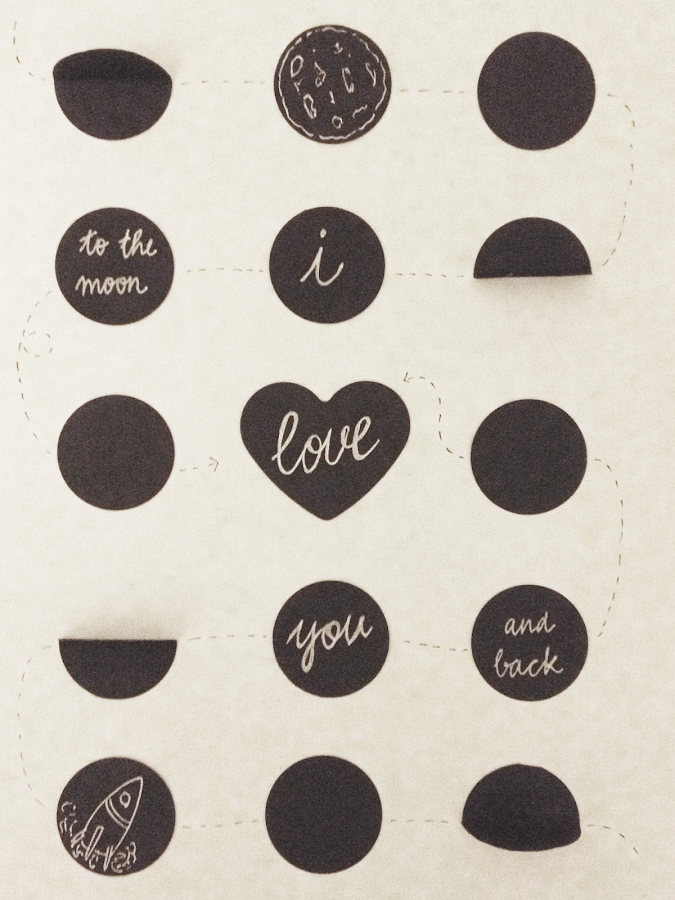 to the
moon
i
love
you
and
back